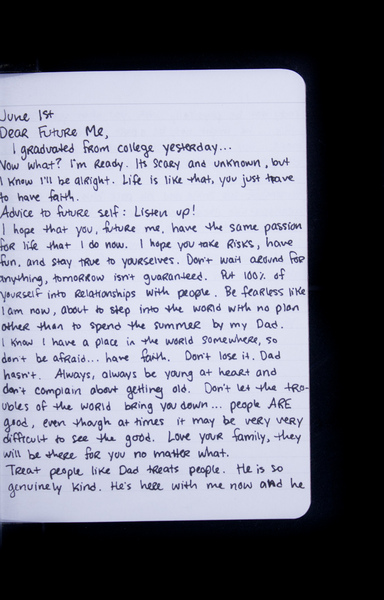 June 1st
Dear Future Me,
I graduated from college yesterday...
Now what? I'm Ready. Its Scary and unknown, but
I know I'll be alright. Life is like that, you just have
to have faith.
Advice to future self: Listen up!
I hope that you, future me, have the same passion
for life that I do now. I hope you take Risks, have
fun, and stay true to yourselves. Don't wait around for
anything, tomorrow isn't guaranteed. Put 100% of
yourself into Relationships with people. Be fearless like
I am now, about to step into the world with no plan
other than to spend the summer by my Dad.
I know I have a place in the world somewhere, so
don't be afraid... have faith. Don't lose it. Dad
hasn't. Always, always be young at heart and
don't complain about getting old. Don't let the tro-
ubles of the world bring you down... people ARE
good, even though at times it may be very very
difficult to see the good. Love your family, they
will be there for you no matter what.
Treat people like Dad treats people. He is so
genuinely kind. He's here with me now and he